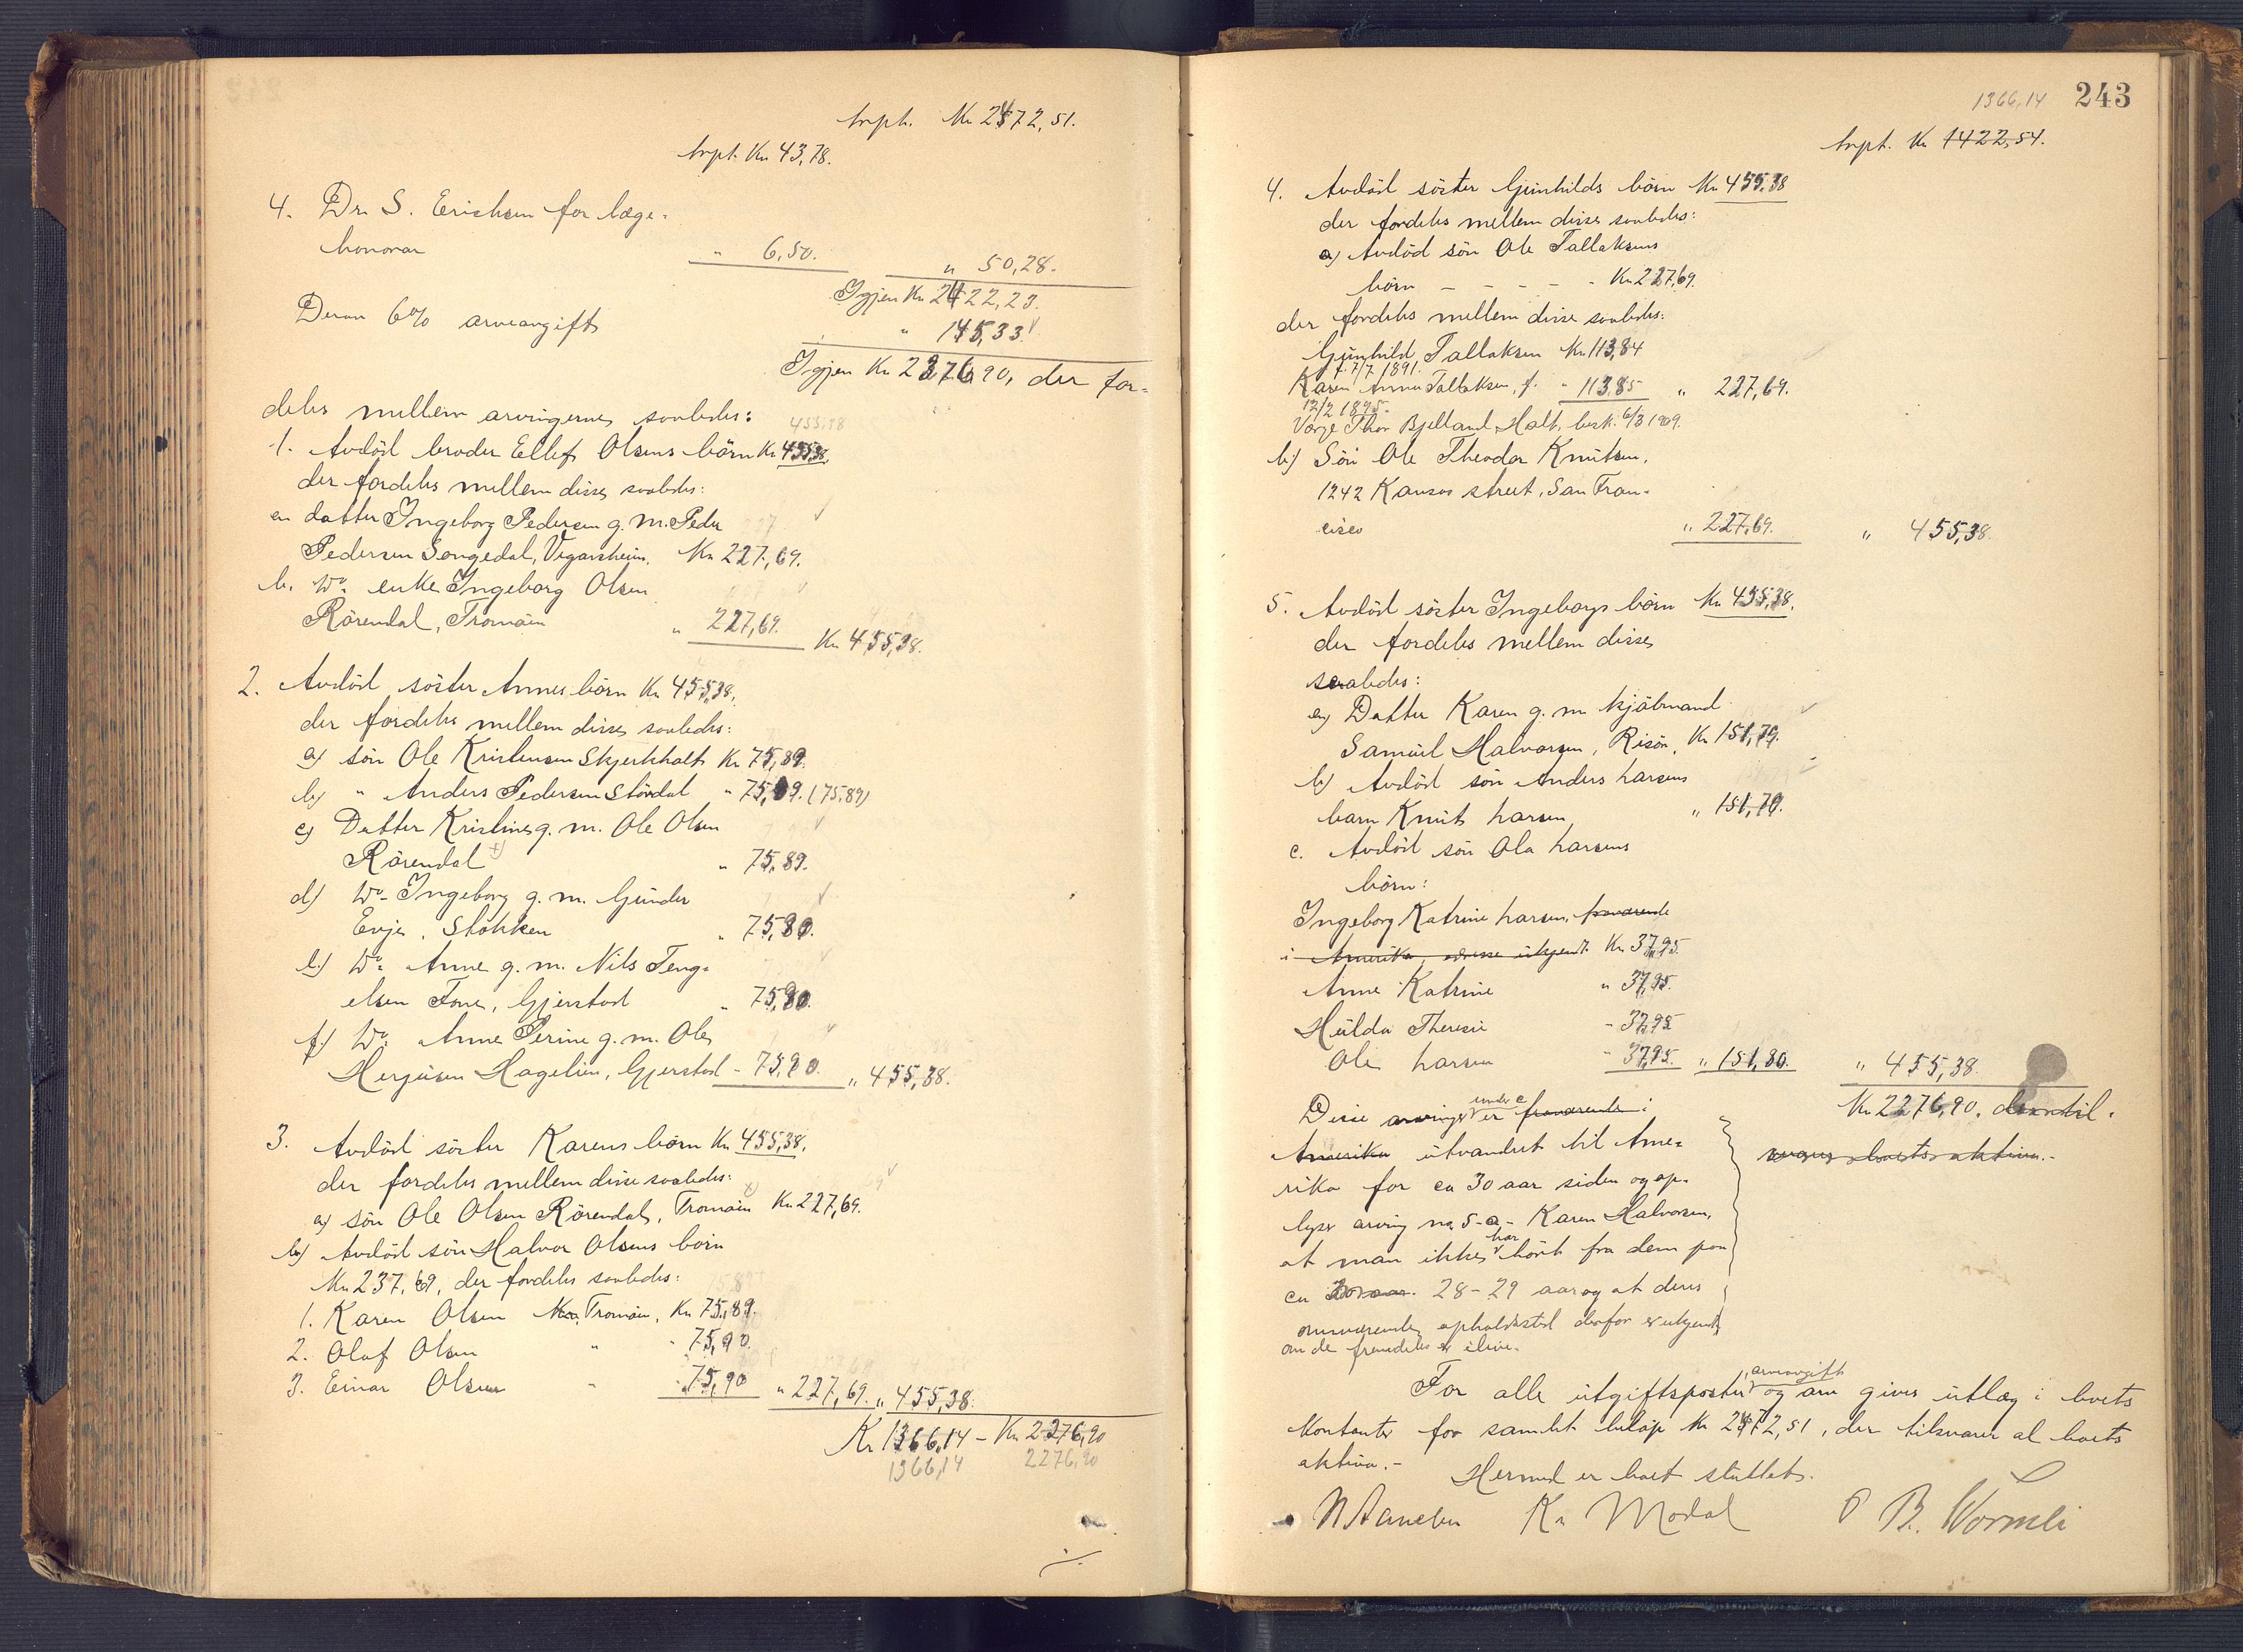 Trspt. Kr 2472,51.
Trspt. Kr 43,78.
4. Dr. S. Erichsen for læge-
honorar " 6,50. " 50,28.
Igjen Kr 2422,23.
Derav 6% arveavgift " 145,33
Igjen Kr 2276,90, der for-
deles mellem arvingerne saaledes:
455,38
1. Avdöd broder Ellef Olsens börn Kr 455,38,
der fordeles mellem disse saaledes:
a datter Ingeborg Pedersen g. m. Peder
Pedersen Songedal, Vegarsheim, Kr 227,69.
b. Do enke Ingeborg Olsen
Rörendal, Tromöen " 227,69. Kr 455,38.
2. Avdöd söster Annes börn Kr 455,38,
der fordeles mellem disse saaledes:
a) sön Ole Kristensen Skjerkholt Kr 75,89.
b) " Anders Pedersen Stövdal " 75,89. (75,89)
c) Datter Kristine g. m. Ole Olsen
Rörendal x) " 75,89.
d) Do Ingeborg g. m. Gunder
Evje, Stokken " 75,90.
e) Do Anne g. m. Nils Teng-
elsen Fone, Gjerstad " 75,90.
f) Do Anne Perine g. m. Ole
Herjusen Hagelien, Gjerstad - 75,90. " 455,38.
3. Avdöd söster Karens börn Kr 455,38,
der fordeles mellem disse saaledes:
a) sön Ole Olsen Rörendal, Tromöen x) Kr 227,69.
b) Avdöd sön Halvor Olsens börn
Kr 237,69, der fordeles saaledes:
1. Karen Olsen Tromöen, Kr 75,89.
2. Olaf Olsen " - 75,90.
3. Einar Olsen - " 75,90 " 227,69. " 455,38.
Kr 1366,14 - Kr 2276,90
1366,14 2276,90
./.
1366,14 243
Trspt. Kr 1422,54.
4. Avdöd söster Gunhilds börn Kr 455,38
der fordeles mellem disse saaledes:
a) Avdöd sön Ole Tallaksens
börn - - - - - Kr 227,69.
der fordeles mellem disse saaledes:
Gunhild Tallaksen Kr 113,84
f. 7/7 1891.
Karen Anna Tallaksen, f. " 113,85 " 227,69.
12/2 1895.
Verge Thor Bjelland, Holt, besk. 6/3 1909.
b) Sön Ole Theodor Knutsen,
1242 Kansas street, San Fran-
cisco " 227,69. " 455,38.
5. Avdöd söster Ingeborgs börn Kr 455,38,
der fordeles mellem disse
saaledes:
a) Datter Karen g. m. kjöbmand
Samuel Halvorsen, Risör, Kr 151,79.
b) Avdöd sön Anders Larsens
barn Knut Larsen " 151,79.
c. Avdöd sön Ola Larsens
börn:
Ingeborg Katrine Larsen, fraværende
i Amerika, adresse ukjendt Kr 37,95.
Anne Katrine " 37,95.
Hulda Theresie - 37,95
Ole Larsen - 37,95. " 151,80. " 455,38.
Kr 2276,90, dertil-
svarer boets aktiva.-
Disse arvinger under c er fraværende i
Amerika utvandret til Ame-
rika for ca 30 aar siden og op-
lyser arving no 5-a- Karen Halvorsen,
at man ikke har hört fra dem paa
ca 28-29 aar og at deres
nuværende opholdssted derfor er ukjendt,
om de fremdeles er ilive.
For alle utgiftsposter, arveavgift og arv gives utlæg i boets
Kontanter for samlet belöp Kr 2472,51, der tilsvarer al boets
aktiva.-
Hermed er boet sluttet.
N Aanesen Kr. Modal P B. Wormli